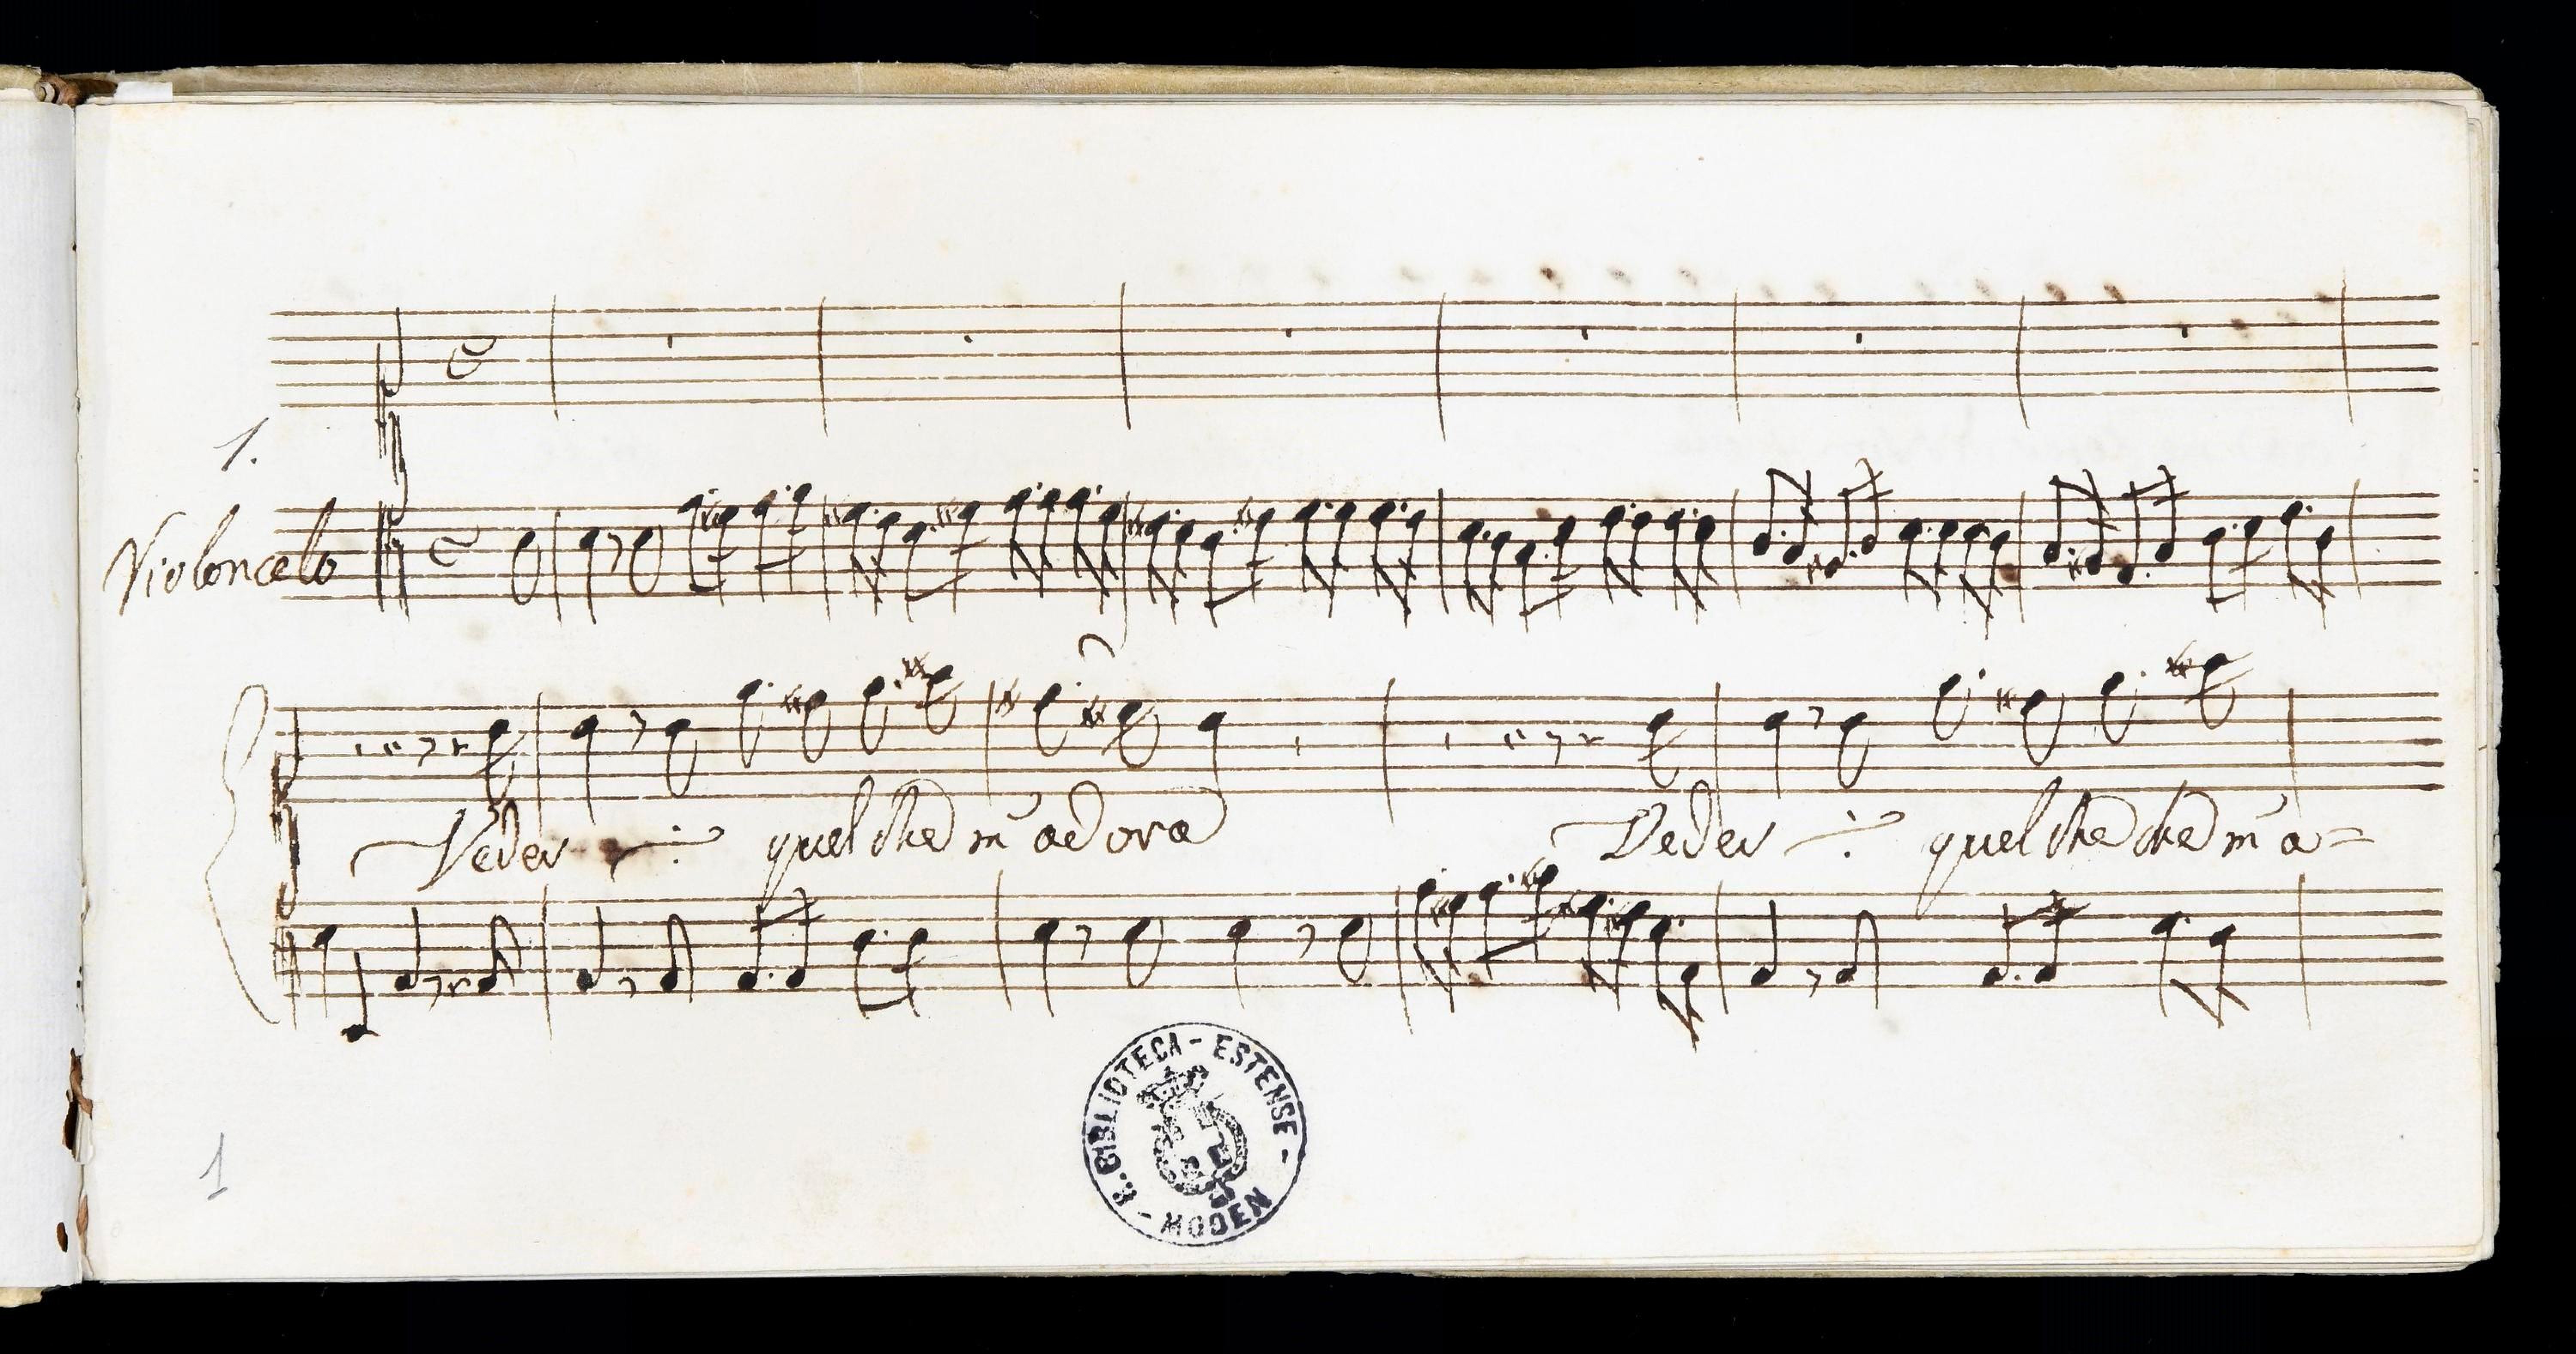 1.
Violoncelo
Veder quel che m'adora Veder quel che che m'a=
R. BIBLIOTECA - ESTENSE - MODEN
1